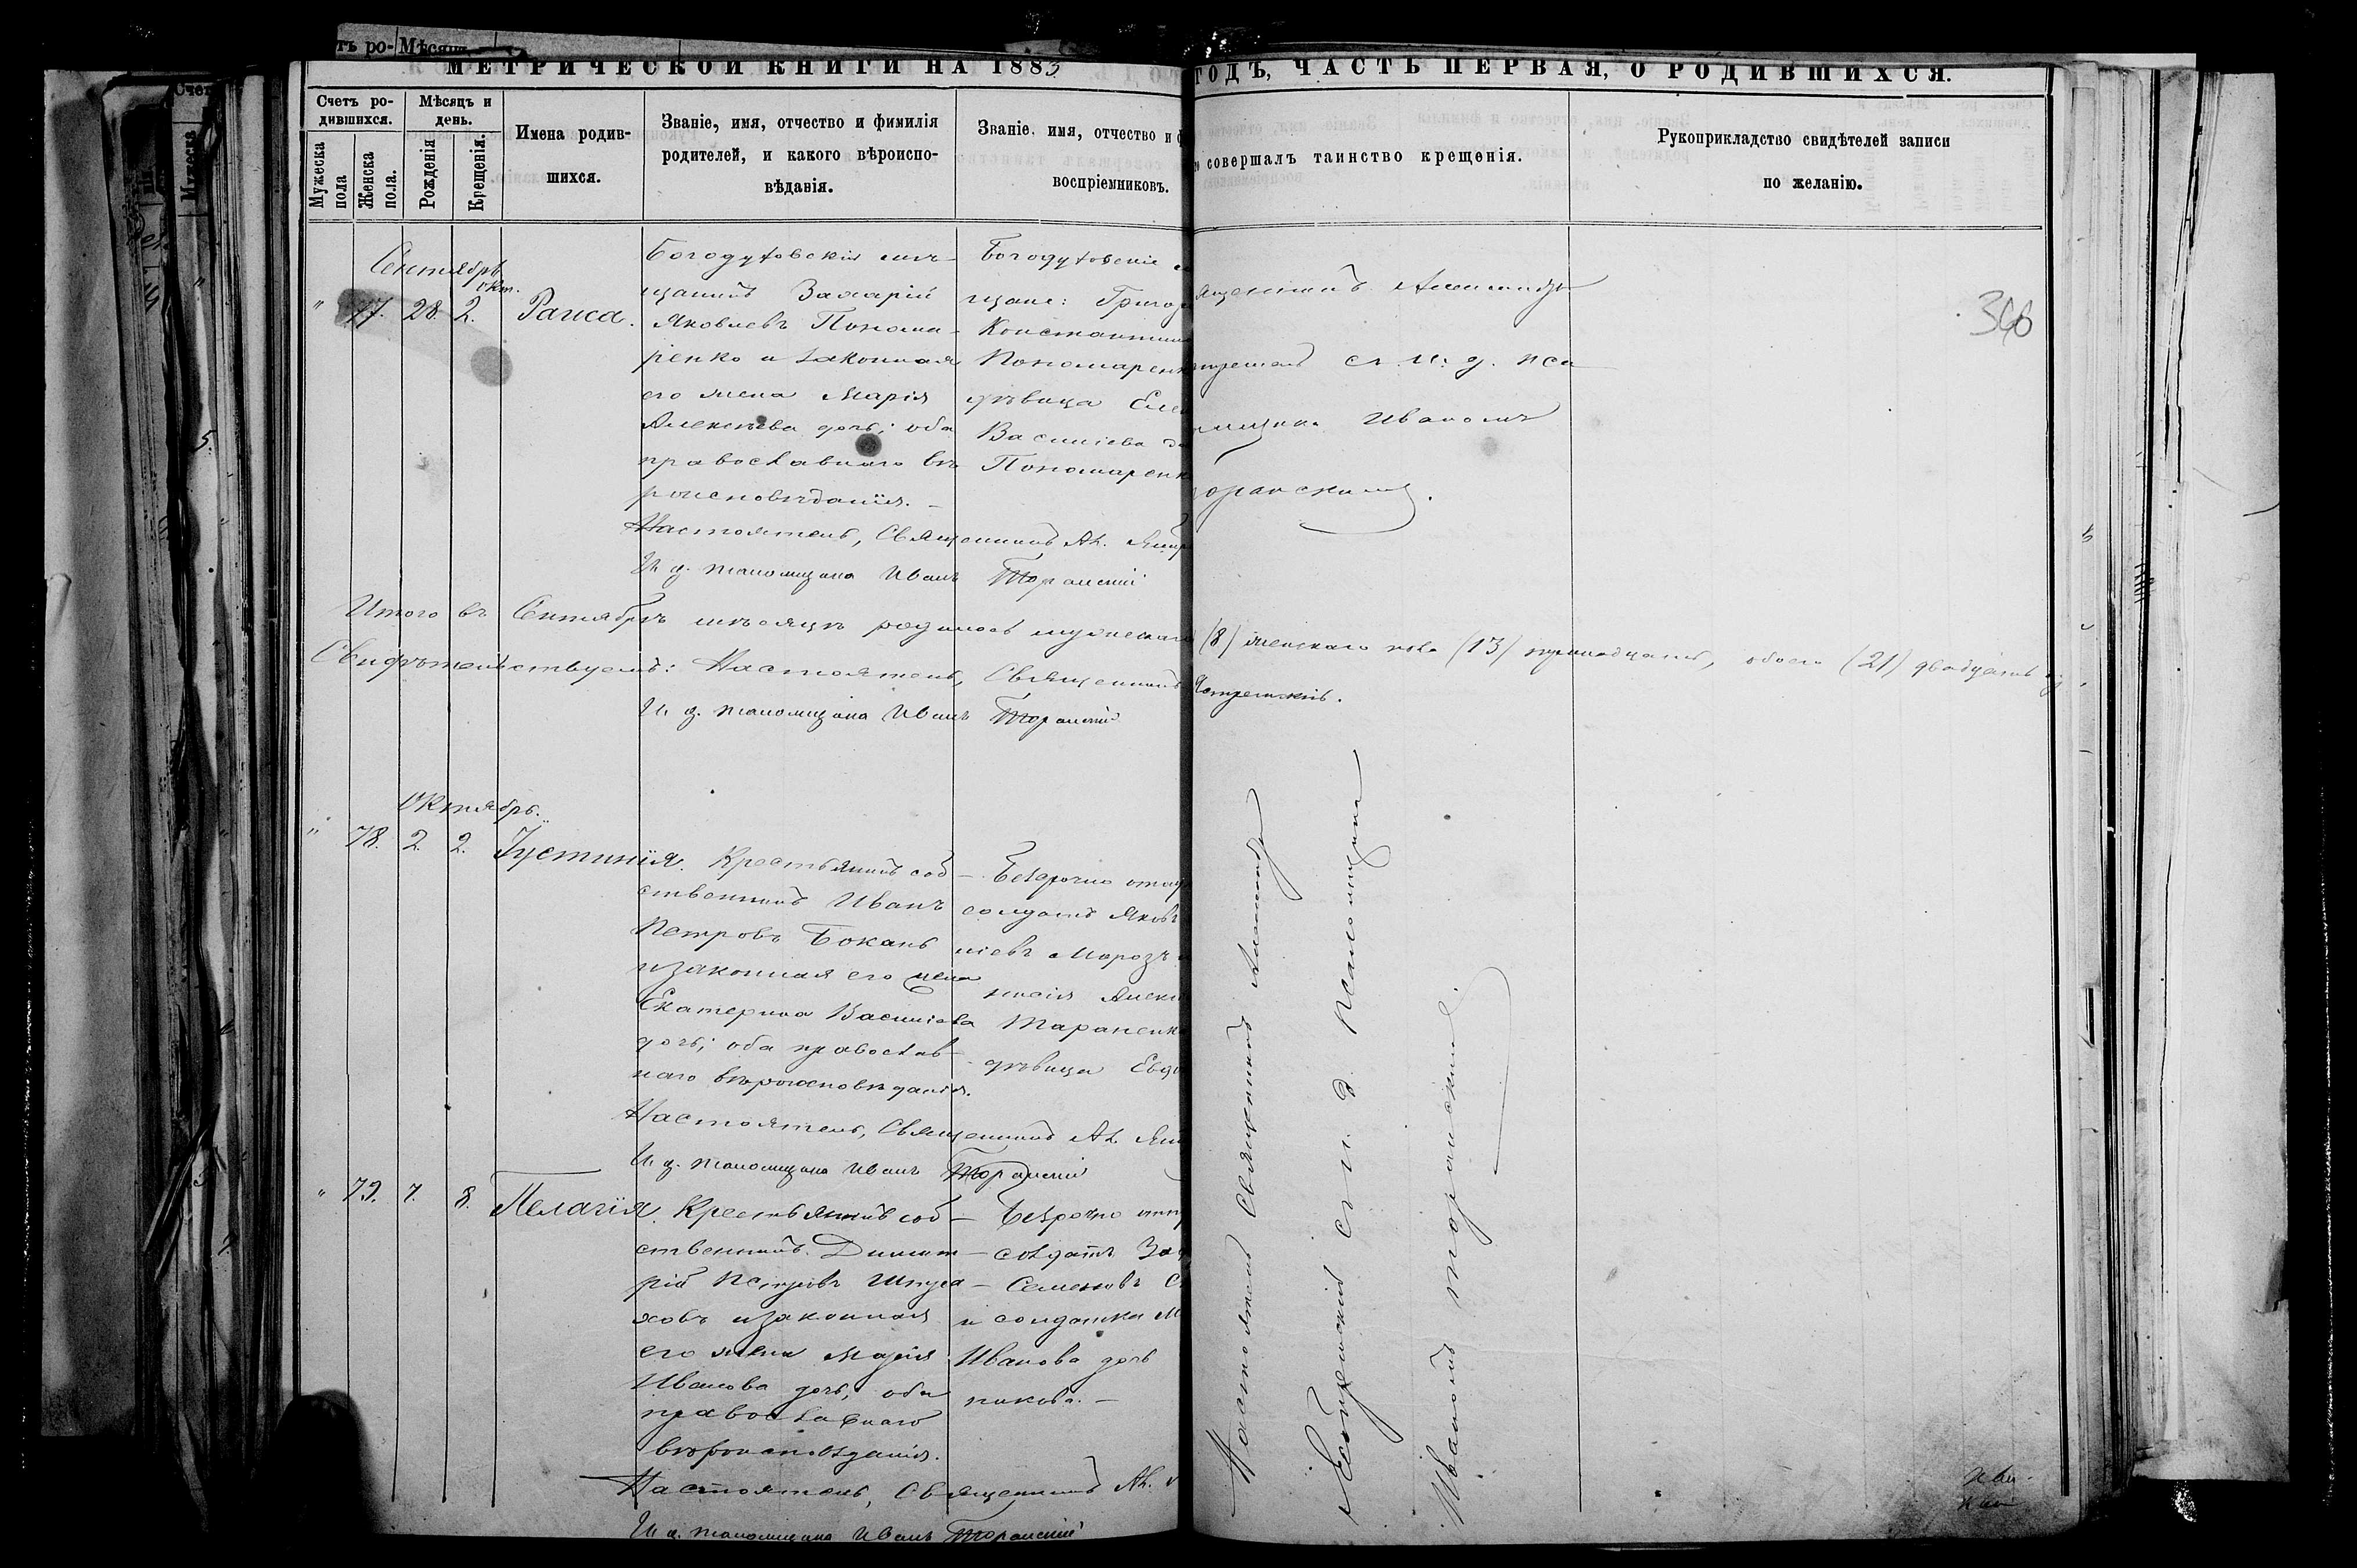 МЕТРИЧЕСКОЙ КНИГИ НА 1883
ГОДЪ, ЧАСТЬ ПЕРВАЯ, О РОДИВШИХСЯ.
Счетъ ро-
дившихся.
Мужеска
пола
Женска
пола.
Мѣсяцъ и
день.
Рожденія
Крещенія.
Имена родив-
шихся.
Званіе, имя, отчество и фимилія
родителей, и какого вѣроиспо-
вѣданія.
Званіе, имя, отчество и
воспріемниковъ.
совершалъ таинство крещенія.
Рукоприкладство свидѣтелей записи
по желанію.
366
Сентябрь
окт.
" 77. 28. 2. Раиса.
Богодуховскій мѣ-
щанинъ Захарій
Яковлевъ Понома-
ренко и законная
его жена Марія
Алексѣева дочь; оба
православнаго вѣ
роисповѣданія. –
Богодуховскіе
щане:
Константинов
Пономаренк
дѣвица Еле
Васильева
Пономаренк
Александръ
с. и. д. пса
Иваномъ
Торанскимъ.
Настоятель, Священникъ Ал.
И. д. псаломщика Иванъ Торанскій
Итого въ Сентябрѣ мѣсяцѣ родилось мужескаго
(8) женскаго пола (13) тринадцать, обоего (21) двадцать
Свидѣтельствуемъ: Настоятель, Священникъ
И. д. псаломщика Иванъ Торанскій
Октябрь.
" 78. 2. 2. Іустинія.
Крестьянинъ соб-
ственникъ Иванъ
Петровъ Бокань
и законная его жена
Екатерина Васильева
дочь; оба православ-
наго вѣроисповѣданія.
Безсрочно
солдатъ Яковъ
Морозъ
Тараненк
дѣвица Евд
Настоятель, Священникъ Ал.
И. д. псаломщика Иванъ Торанскій
" 79. 7. 8. Пелагія.
Крестьянинъ соб-
ственникъ Димит-
рій Петровъ
и законная
его жена Марія
Иванова дочь, оба
православнаго
вѣроисповѣданія.
Безсрочно
солдатъ За
Семеновъ
и солдатка М
Иванова дочь
никова. –
Настоятель, Священникъ Ал.
И. д. псаломщика Иванъ Торанскій
Настоятель Священникъ Александръ
с. и. д. Псаломщика
Иваномъ Торанскимъ.